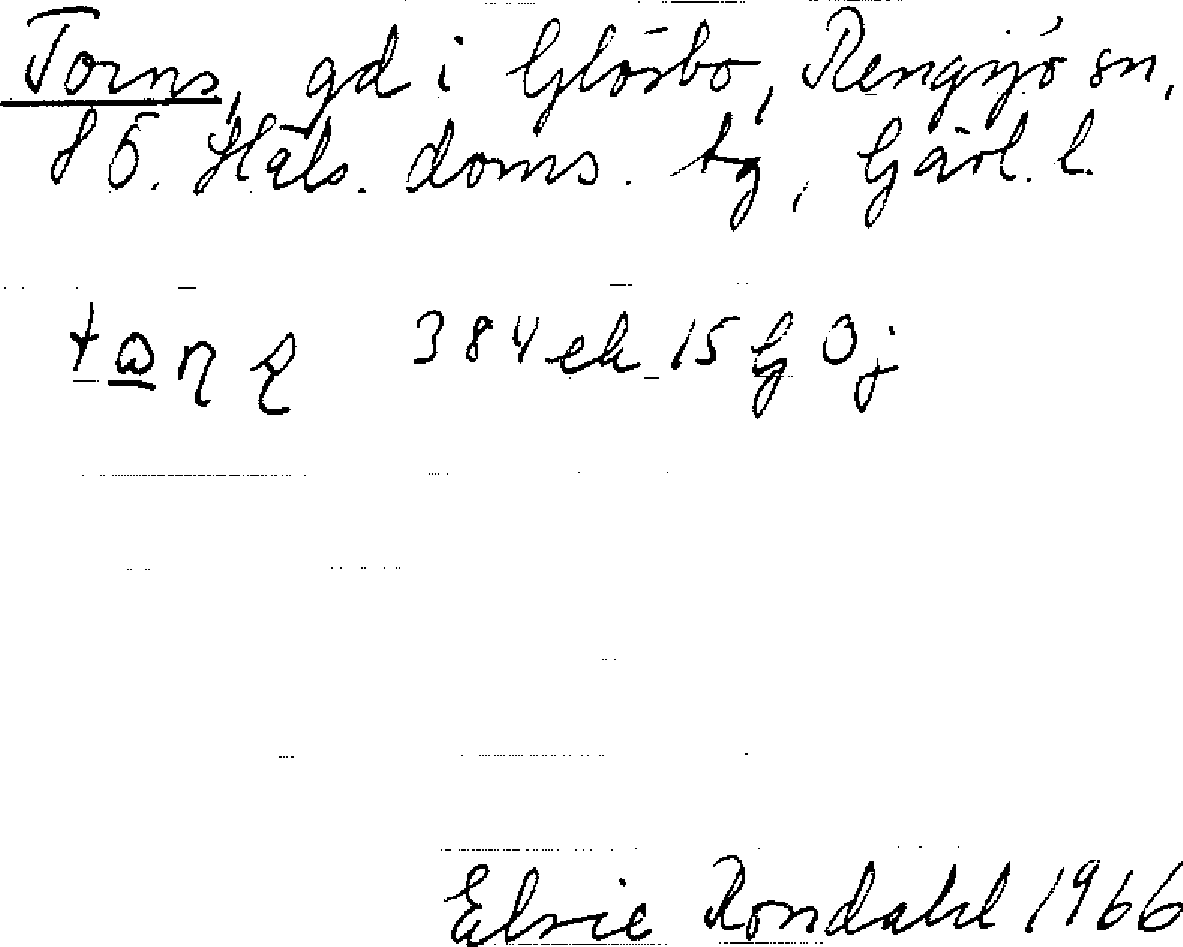 Torns, gd i Glösbo, Rengsjö sn,
SÖ. Häls. doms. tg, Gävl. l.
384 ek 15 G 0 j
Elsie Rondahl 1966